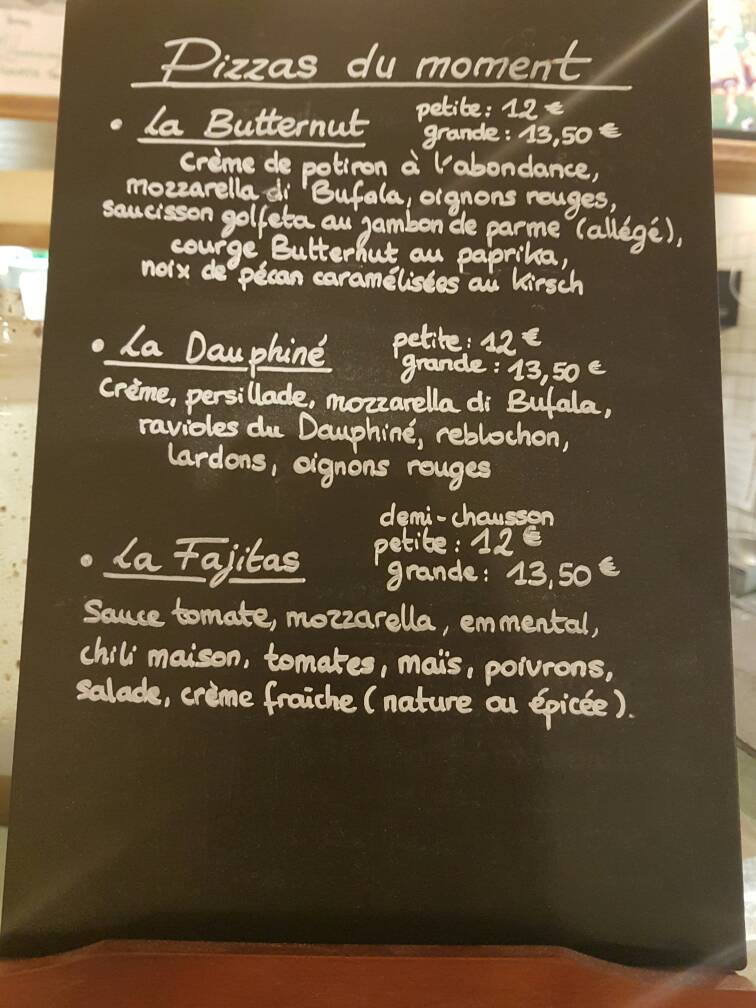 Pizzas du moment
• La Butternut petite : 12 €
grande : 13,50 €
Crème de potiron à l'abondance,
mozzarella di Bufala, oignons rouges,
saucisson golfeta au jambon de parme (allégé),
courge Butternut au paprika,
noix de pécan caramélisées au kirsch
• La Dauphiné petite : 12 €
grande : 13,50 €
Crème, persillade, mozzarella di Bufala,
ravioles du Dauphiné, reblochon,
lardons, oignons rouges
demi-chausson
• La Fajitas petite : 12 €
grande : 13,50 €
Sauce tomate, mozzarella, emmental,
chili maison, tomates, maïs, poivrons,
salade, crème fraîche (nature ou épicée).